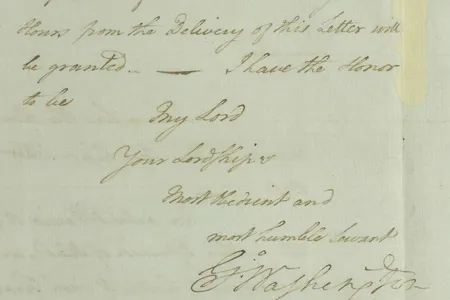 Hours from the Delivery of this Letter will
be granted. — I have the Honor
to be
My Lord
Your Lordships
Most Obedient and
most humble Servant
Go. Washington